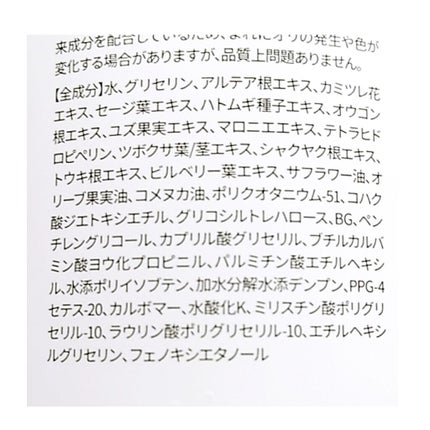 来成分を配合しているため、まれにオリの発生や色が
変化する場合がありますが、品質上問題ありません。
【全成分】水、グリセリン、アルテア根エキス、カミツレ花
エキス、セージ葉エキス、ハトムギ種子エキス、オウゴン
根エキス、ユズ果実エキス、マロニエエキス、テトラヒド
ロピペリン、ツボクサ葉/茎エキス、シャクヤク根エキス、
トウキ根エキス、ビルベリー葉エキス、サフラワー油、オ
リーブ果実油、コメヌカ油、ポリクオタニウム-51、コハク
酸ジエトキシエチル、グリコシルトレハロース、BG、ペン
チレングリコール、カプリル酸グリセリル、ブチルカルバ
ミン酸ヨウ化プロピニル、パルミチン酸エチルヘキシ
ル、水添ポリイソブテン、加水分解水添デンプン、PPG-4
セテス-20、カルボマー、水酸化K、ミリスチン酸ポリグリ
セリル-10、ラウリン酸ポリグリセリル-10、エチルヘキシ
ルグリセリン、フェノキシエタノール